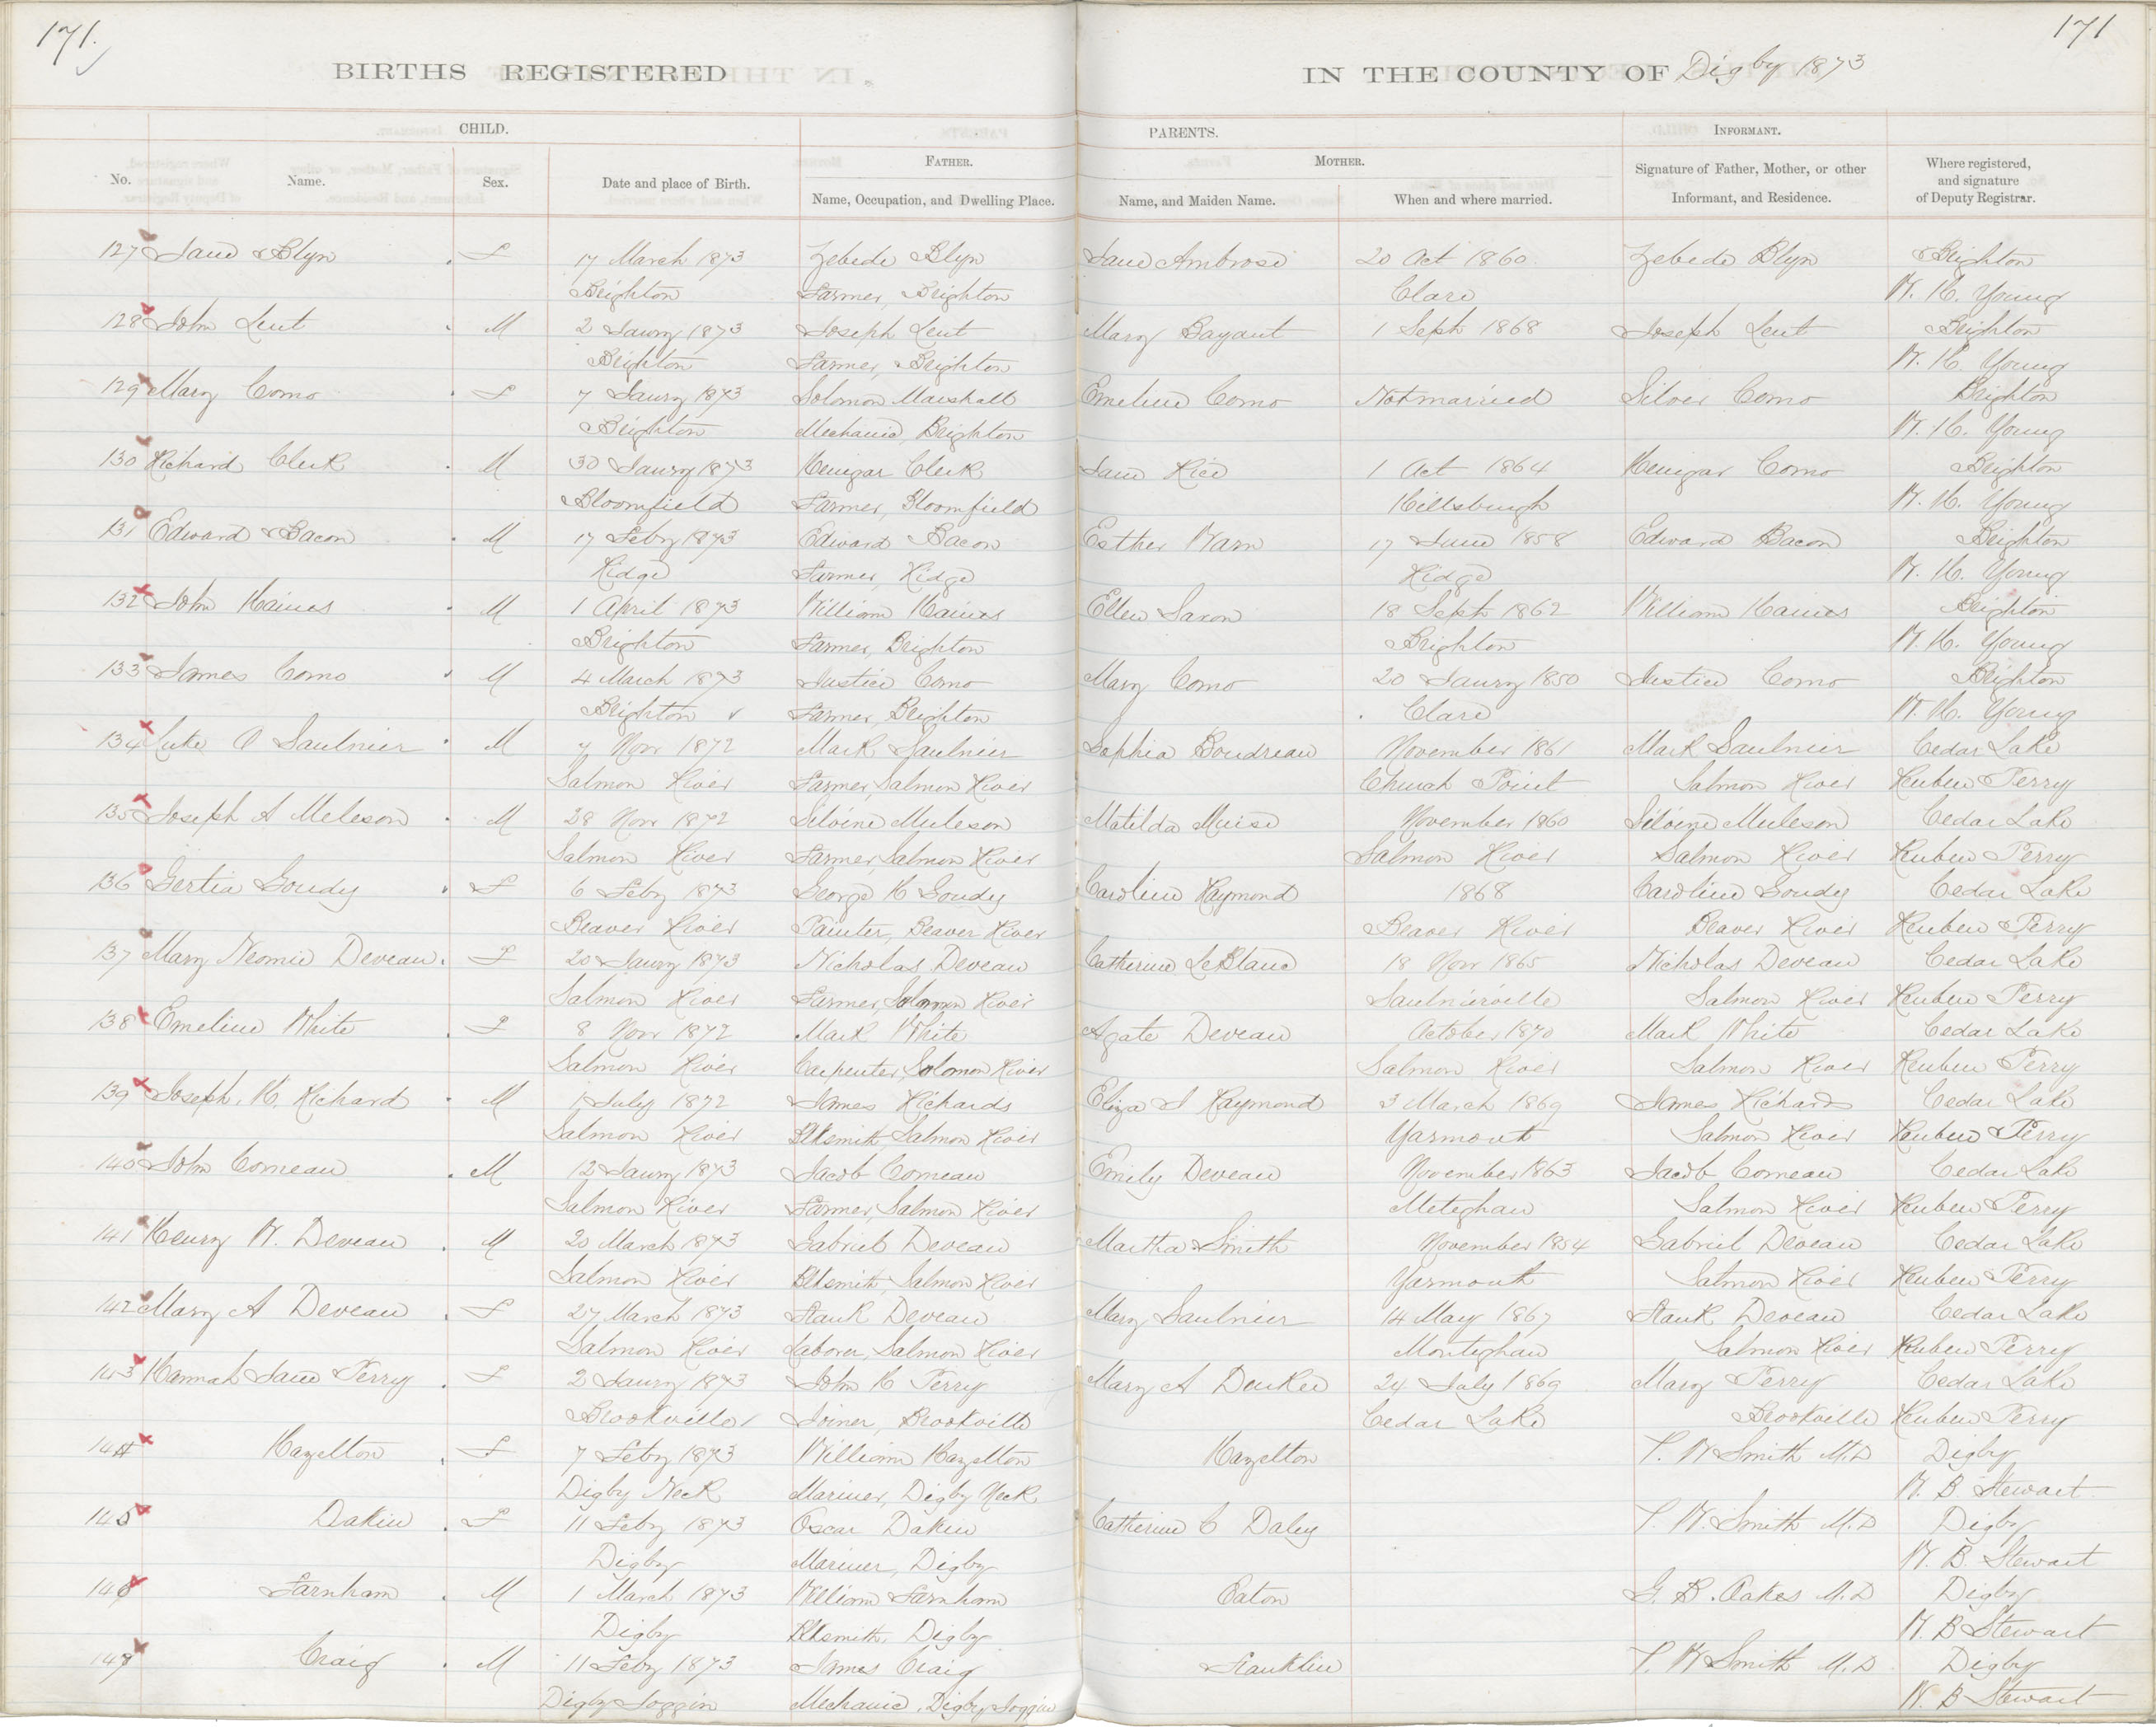 171.
171
BIRTHS REGISTERED IN THE COUNTY OF Digby 1873
CHILD. PARENTS. INFORMANT.
FATHER. MOTHER.
No. Name. Sex. Date and place of Birth. Name, Occupation, and Dwelling Place. Name, and Maiden Name. When and where married. Signature of Father, Mother, or other Informant, and Residence. Where registered, and signature of Deputy Registrar.
127 Jane Blyn F 17 March 1873 Zebede Blyn Jane Ambrose 20 Oct 1860 Zebede Blyn Brighton
Brighton Farmer, Brighton Clare W. H. Young
128 John Lent M 2 Jaury 1873 Joseph Lent Mary Bayant 1 Sept 1868 Joseph Lent Brighton
Brighton Farmer, Brighton W. H. Young
129 Mary Como F 7 Jaury 1873 Solomon Marshall Emeline Como Not married Silver Como Brighton
Brighton Mechanic, Brighton W. H. Young
130 Richard Clerk M 30 Jaury 1873 Henigar Clerk Jane Rice 1 Oct 1864 Henigar Como Brighton
Bloomfield Farmer, Bloomfield Hillsburgh W. H. Young
131 Edward Bacon M 17 Feby 1873 Edward Bacon Esther Warn 17 June 1858 Edward Bacon Brighton
Ridge Farmer, Ridge Ridge W. H. Young
132 John Haines M 1 April 1873 William Haines Ellen Saxon 18 Sept 1862 William Haines Brighton
Brighton Farmer, Brighton Brighton W. H. Young
133 James Como M 4 March 1873 Justice Como Mary Como 20 Jaury 1850 Justice Como Brighton
Brighton Farmer, Brighton Clare W. H. Young
134 Luke A Saulnier M 7 Nov 1872 Mark Saulnier Sophia Boudreau November 1861 Mark Saulnier Cedar Lake
Salmon River Farmer, Salmon River Church Point Salmon River Reuben Perry
135 Joseph A Meleson M 28 Nov 1872 Siloine Muleson Matilda Muise November 1860 Siloine Muleson Cedar Lake
Salmon River Farmer, Salmon River Salmon River Salmon River Reuben Perry
136 Gertia Goudy F 6 Feby 1873 George H Goudy Caroline Raymond 1868 Caroline Goudy Cedar Lake
Beaver River Painter, Beaver River Beaver River Beaver River Reuben Perry
137 Mary Neomie Deveau F 20 Jaury 1873 Nicholas Deveau Catherine LeBlanc 18 Nov 1865 Nicholas Deveau Cedar Lake
Salmon River Farmer, Solomon River Saulnierville Salmon River Reuben Perry
138 Emeline White F 8 Nov 1872 Mark White Agate Deveau October 1870 Mark White Cedar Lake
Salmon River Carpenter, Solomon River Salmon River Salmon River Reuben Perry
139 Joseph. H. Richard M 1 July 1872 James Richards Eliza J Raymond 3 March 1869 James Richards Cedar Lake
Salmon River Blksmith, Salmon River Yarmouth Salmon River Reuben Perry
140 John Comeau M 12 Jaury 1873 Jacob Comeau Emily Deveau November 1863 Jacob Comeau Cedar Lake
Salmon River Farmer, Salmon River Meteghan Salmon River Reuben Perry
141 Henry W. Deveau M 20 March 1873 Gabriel Deveau Martha Smith November 1854 Gabriel Deveau Cedar Lake
Salmon River Blksmith, Salmon River Yarmouth Salmon River Reuben Perry
142 Mary A Deveau F 27 March 1873 Frank Deveau Mary Saulnier 14 May 1867 Frank Deveau Cedar Lake
Salmon River Laborer, Salmon River Monteghan Salmon River Reuben Perry
143 Hannah Jane Perry F 2 Jaury 1873 John H Perry Mary A Durkee 24 July 1869 Mary Perry Cedar Lake
Brookville Joiner, Brookville Cedar Lake Brookville Reuben Perry
144 Hazelton F 7 Feby 1873 William Hazelton Hazelton F. W Smith M.D Digby
Digby Neck Mariner, Digby Neck W. B. Stewart
145 Dakin F 11 Feby 1873 Oscar Dakin Catherine C Daley F. W. Smith M.D Digby
Digby Mariner, Digby W. B. Stewart
146 Farnham M 1 March 1873 William Farnham Eaton G. B. Oakes M.D Digby
Digby Blksmith, Digby W. B Stewart
147 Craig M 11 Feby 1873 James Craig Franklin F. W Smith M.D Digby
Digby Joggin Mechanic, Digby Joggin W. B Stewart